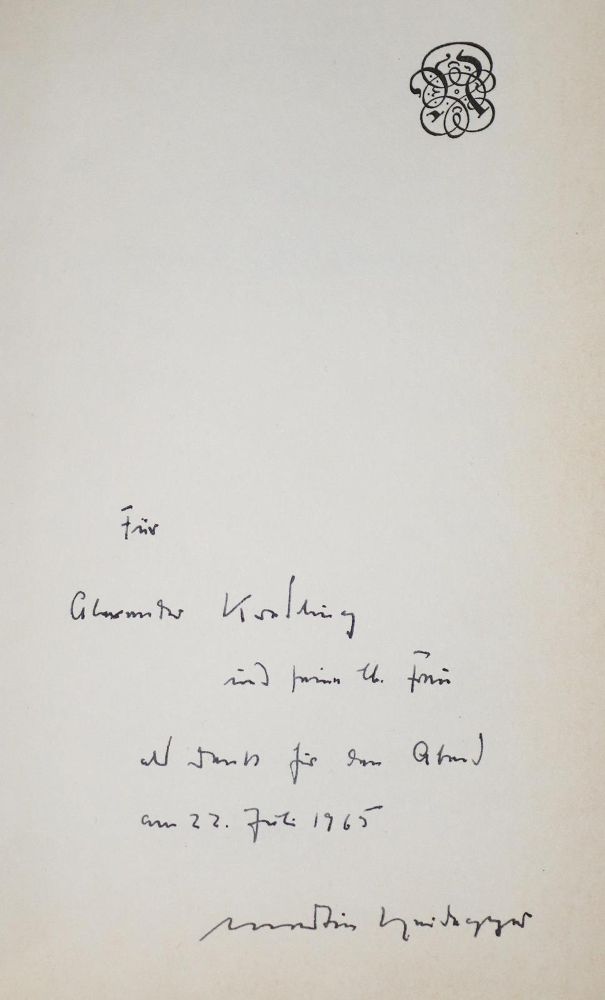 Für
Alexander
und seine lb. Frau
als Dank für den Abend
am 22. Juli 1965
Martin Heidegger